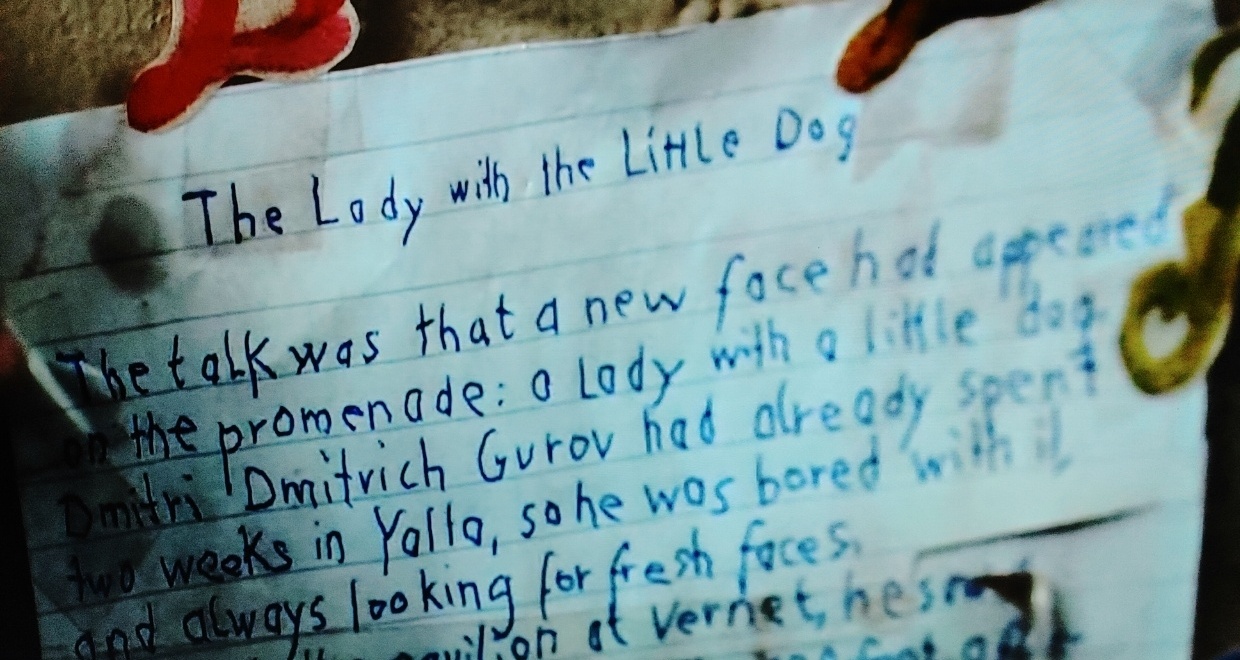 The Lady with the Little Dog
The talk was that a new face had appeared
on the promenade: a Lady with a little dog
Dmitri Dmitrich Gurov had already spent
two weeks in Yalta, so he was bored with it,
and always looking for fresh faces.
pavilion at Vernet, he